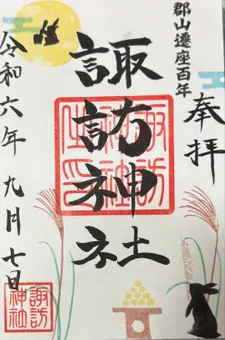 奉拝
郡山遷座百年
諏訪神社
令和六年 九月七日
諏訪神社